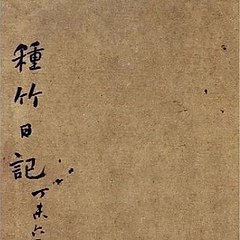 種竹日記
丁未六